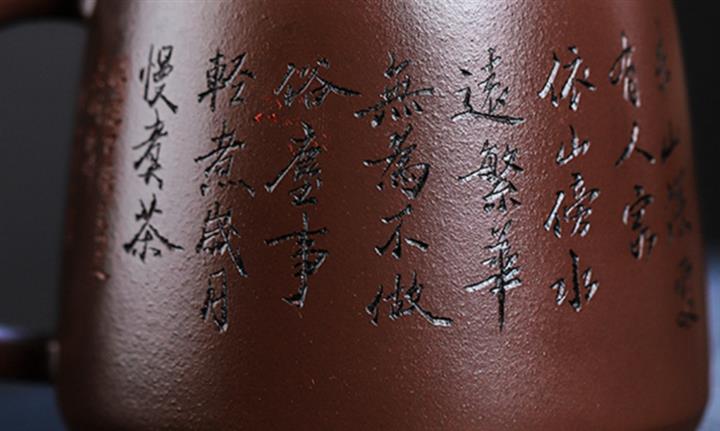 山
有人家
依山傍水
遠繁華
無為不做
俗塵事
輕煮歲月
慢煮茶